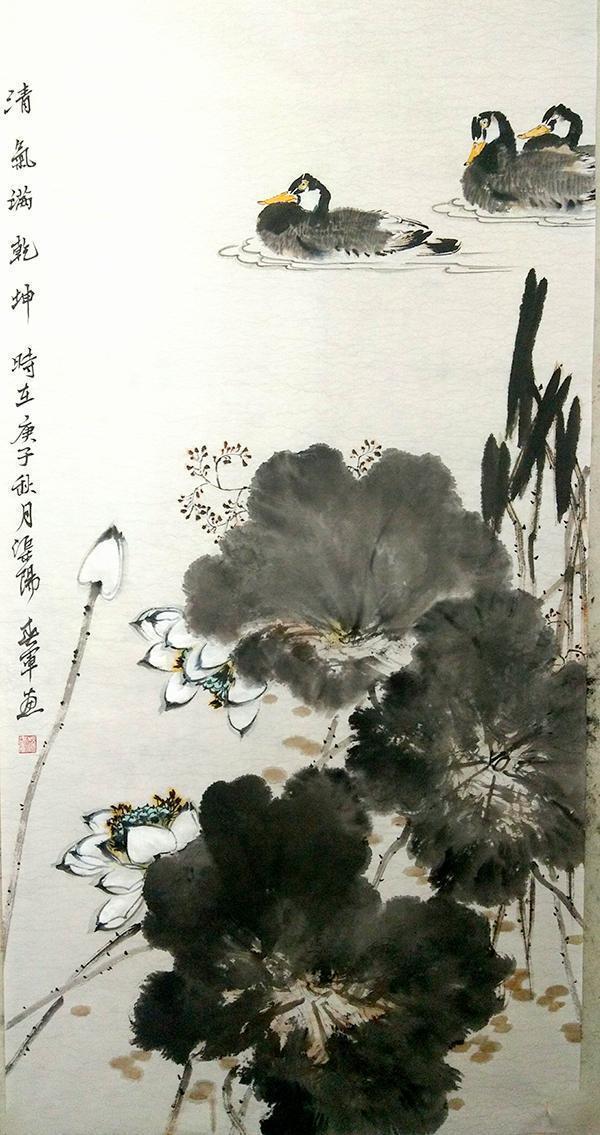 清氣滿乾坤 時在庚子秋月渠陽 春軍画